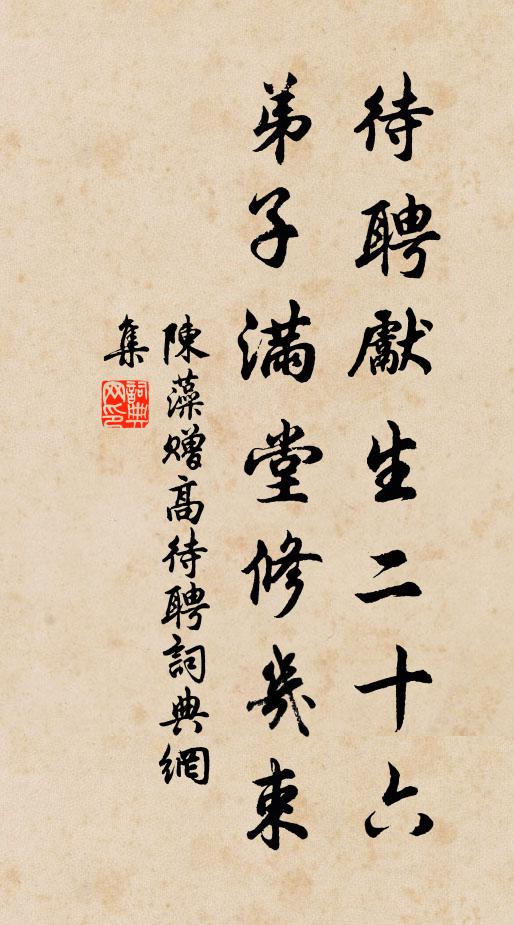 待聘獻生二十六
弟子滿堂修幾束
陳藻贈高待聘詞典網
集
詞典
网印